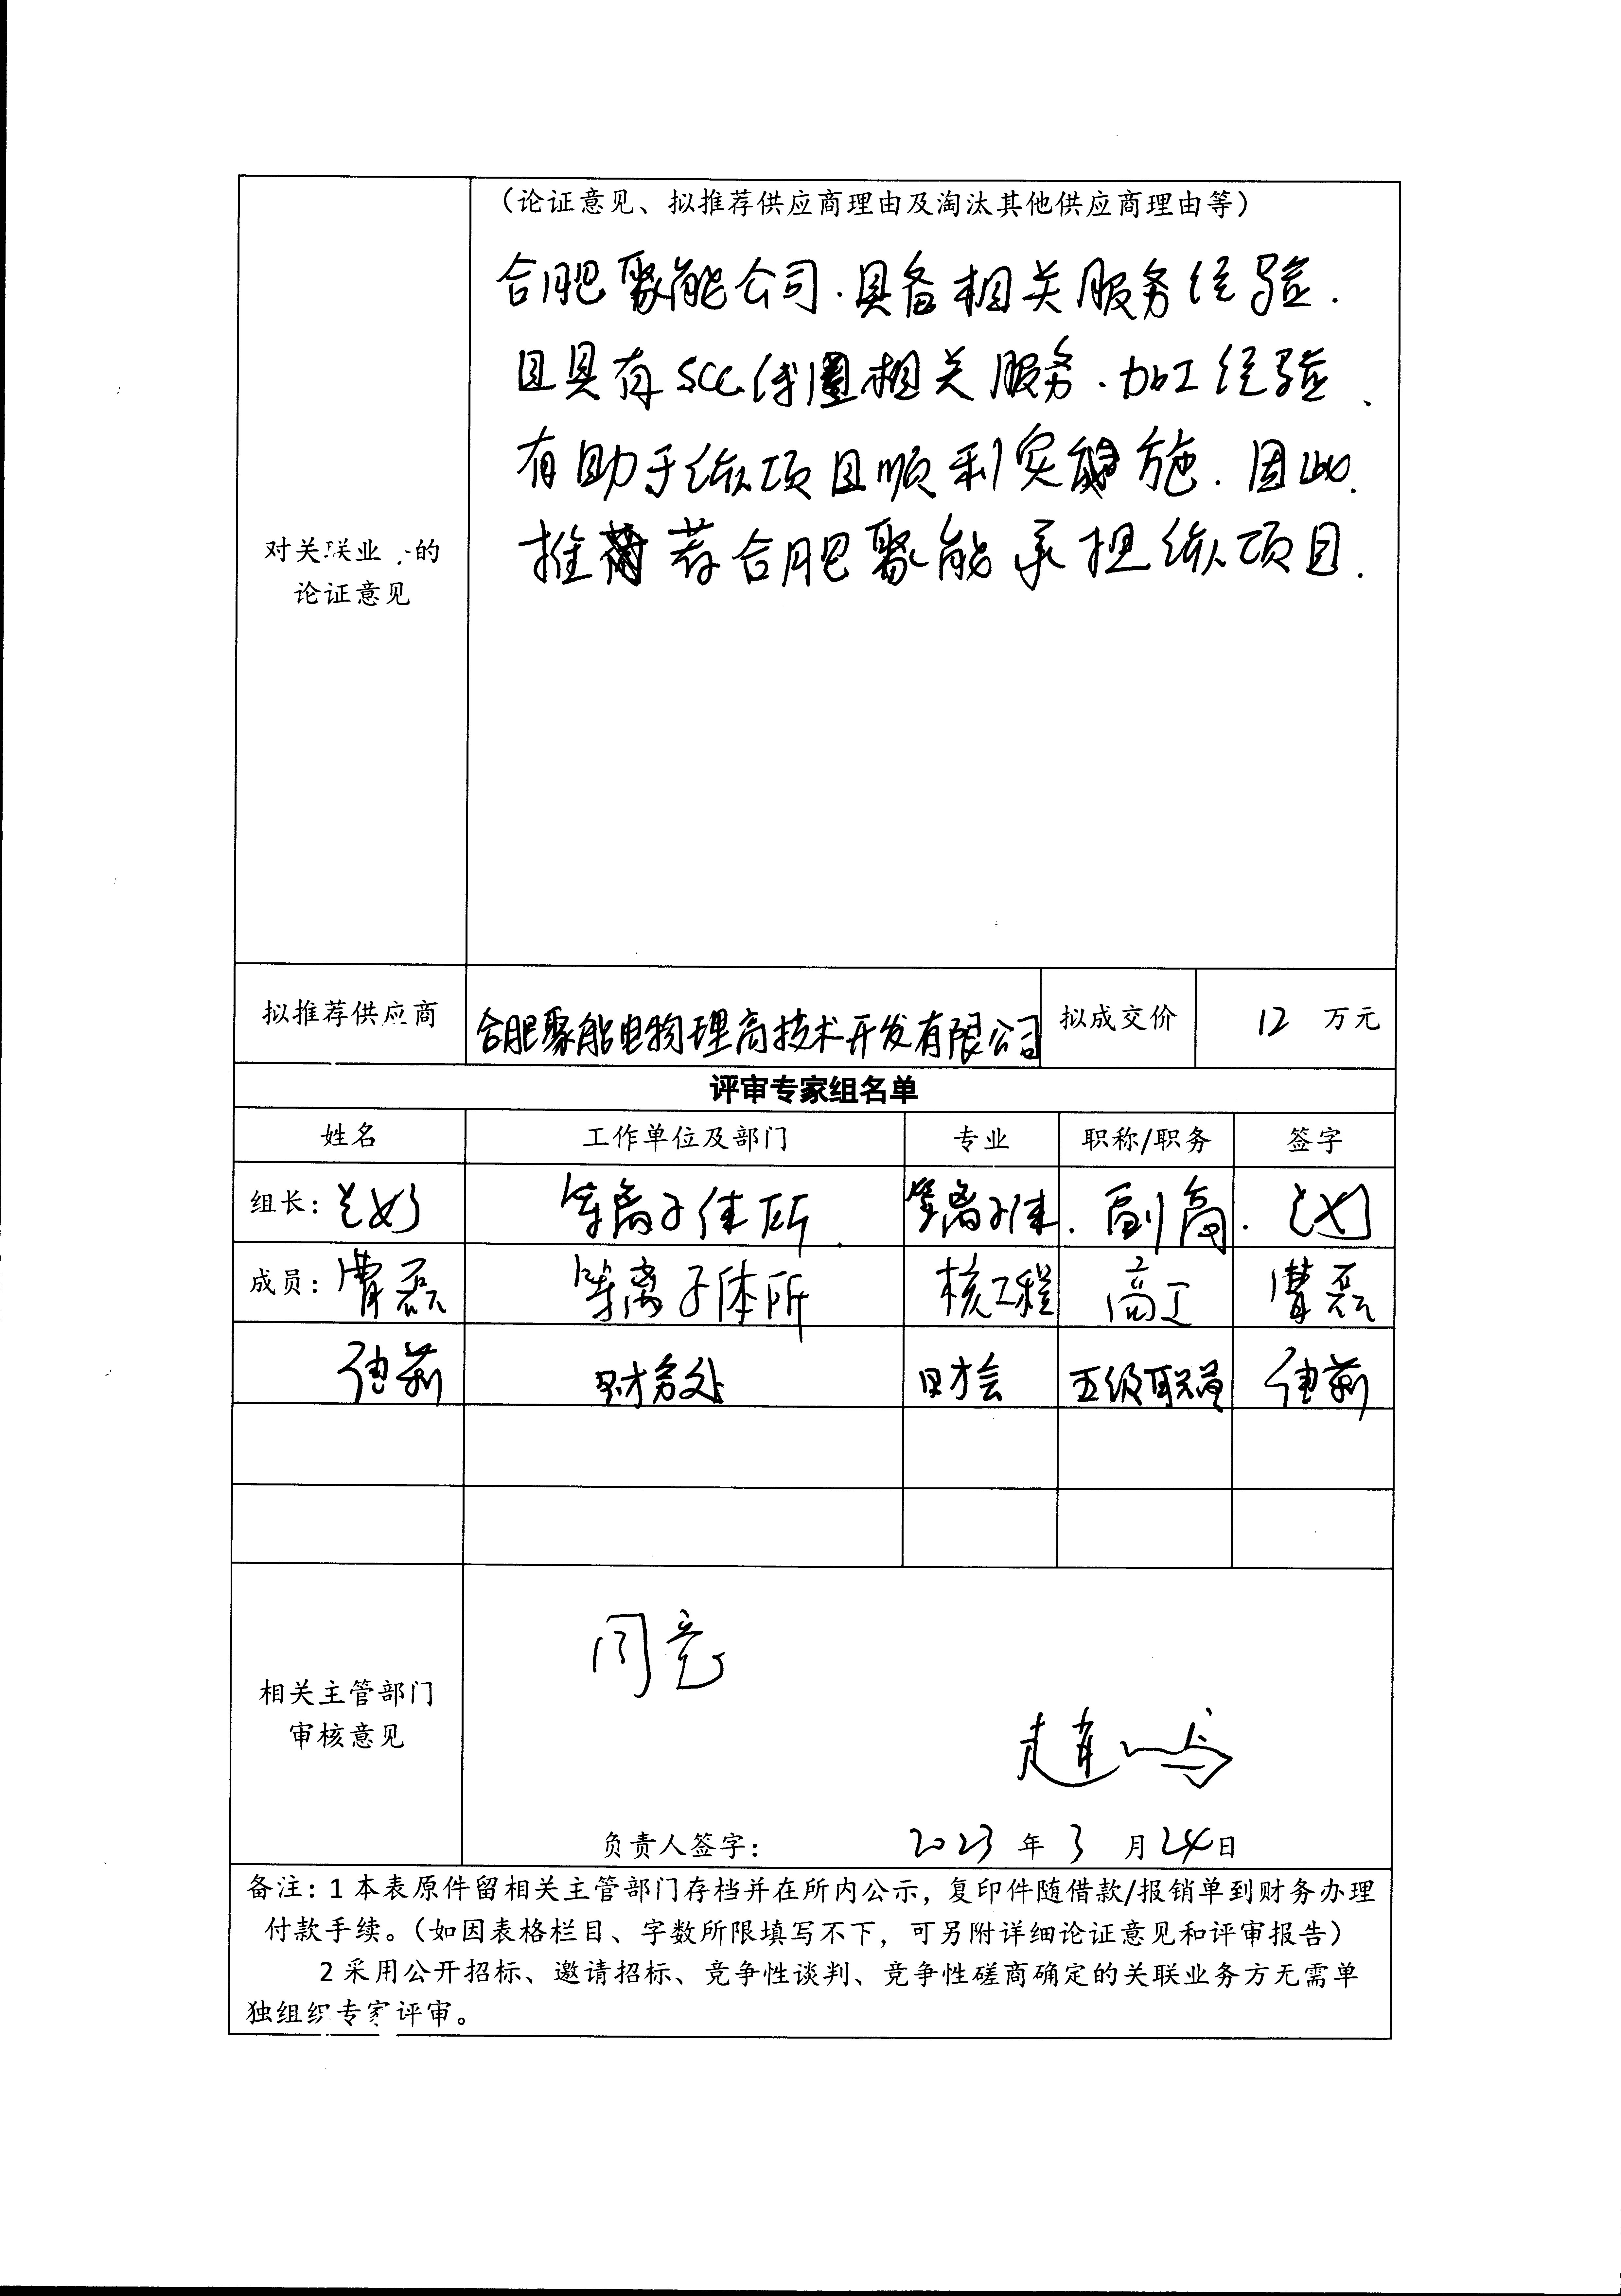 （论证意见、拟推荐供应商理由及淘汰其他供应商理由等）
合肥聚能公司.具备相关服务经验.
且具有SCC线圈相关服务.加工经验、
有助于该项目顺利实施.因此.
推荐合肥聚能承担该项目.
对关联业 的
论证意见
拟推荐供应商 合肥聚能电物理高技术开发有限公司 拟成交价 12 万元
评审专家组名单
姓名 工作单位及部门 专业 职称/职务 签字
组长： 等离子体所. 等离子体. 副高.
成员：曹磊 等离子体所 核工程 高工 曹磊
财务处 财会 五级职员
同意
相关主管部门
审核意见
负责人签字： 2023 年 3 月 24 日
备注：1 本表原件留相关主管部门存档并在所内公示，复印件随借款/报销单到财务办理
付款手续。（如因表格栏目、字数所限填写不下，可另附详细论证意见和评审报告）
2 采用公开招标、邀请招标、竞争性谈判、竞争性磋商确定的关联业务方无需单
独组织专家评审。